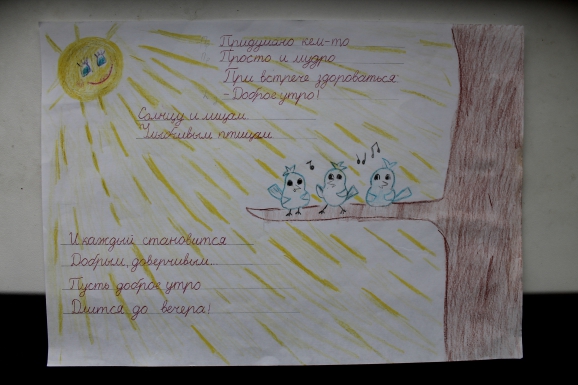 Придумано кем-то
Просто и мудро
При встрече здороваться:
- Доброе утро!
Солнцу и лицам
Улыбчивым птицам
И каждый становится
Добрым, доверчивым...
Пусть доброе утро
Длится до вечера!